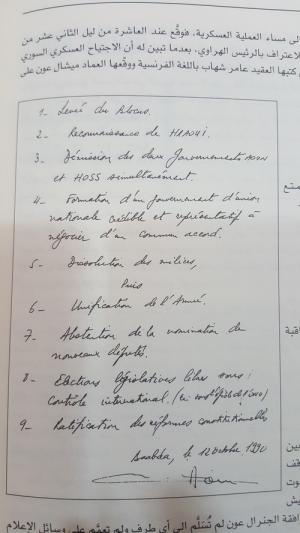 لى مساء العملية العسكرية، فوقّع عند العاشرة من ليل الثاني عشر من
لاعتراف بالرئيس الهراوي، بعدما تبين له أن الاجتياح العسكري السوري
كتبها العقيد عامر شهاب باللغة الفرنسية ووقعها العماد ميشال عون على
1_ Levée du Blocus.
2_ Reconnaissance de HRAOUI.
3_ Démission des deux Gouvernements AOUN
et HOSS simultanément.
4_ Formation d'un gouvernement d'union
nationale crédible et représentatif à
négocier d'un commun accord.
5_ Dissolution des milices,
Puis
6_ Unification de l'Armée.
7_ Abstention de la nomination de
nouveaux députés.
8_ Elections législatives libres sous
contrôle international.
9_ Ratification des réformes constitutionnelles
Baabda, le 12 Octobre 1990
افقة الجنرال عون لم تُسَلَّم إلى أي طرف ولم تعمّم على وسائل الإعلام